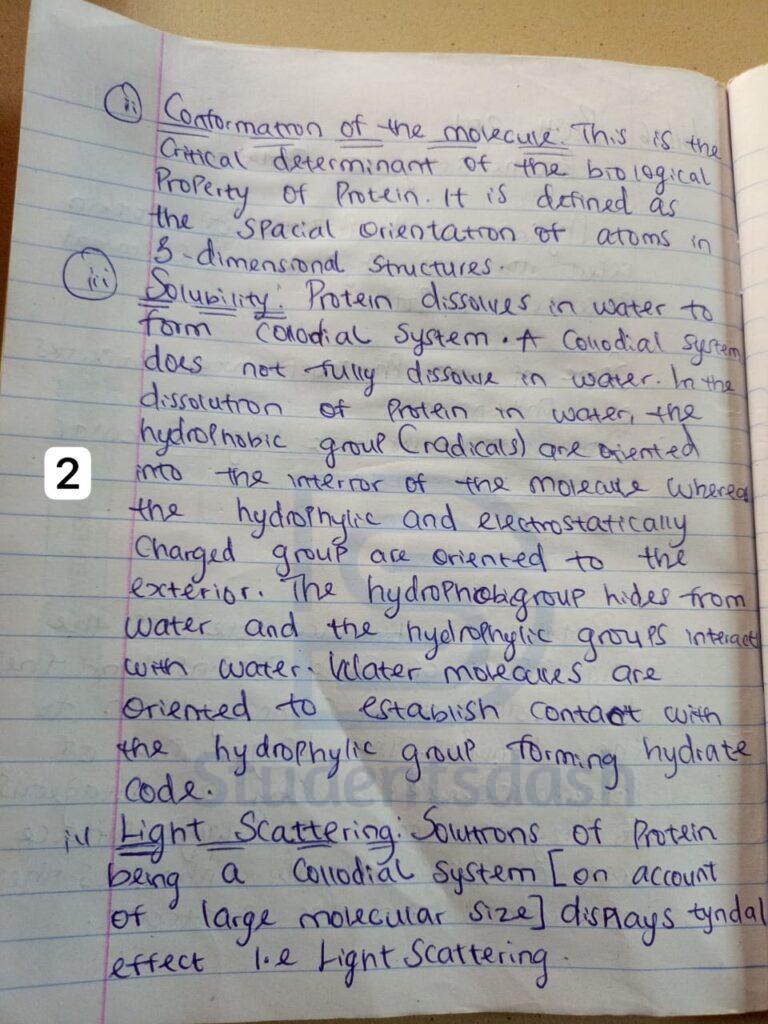 ii Conformation of the molecule: This is the
Critical determinant of the biological
Property of Protein. It is defined as
the spacial orientation of atoms in
3-dimensional structures.
iii Solubility: Protein dissolves in water to
form collodial system. A Collodial system
does not fully dissolve in water. In the
dissolution of Protein in water, the
hydrophobic group (radicals) are oriented
into the interior of the molecule whereas
2
the hydrophylic and electrostatically
Charged group are oriented to the
exterior. The hydrophobigroup hides from
water and the hydrophylic groups interact
with water. Water molecules are
oriented to establish contact with
the hydrophylic group forming hydrate
code.
Studentsdash
iv Light Scattering: Solutions of Protein
being a Collodial system [on account
of large molecular size] displays tyndal
effect i.e Light Scattering.